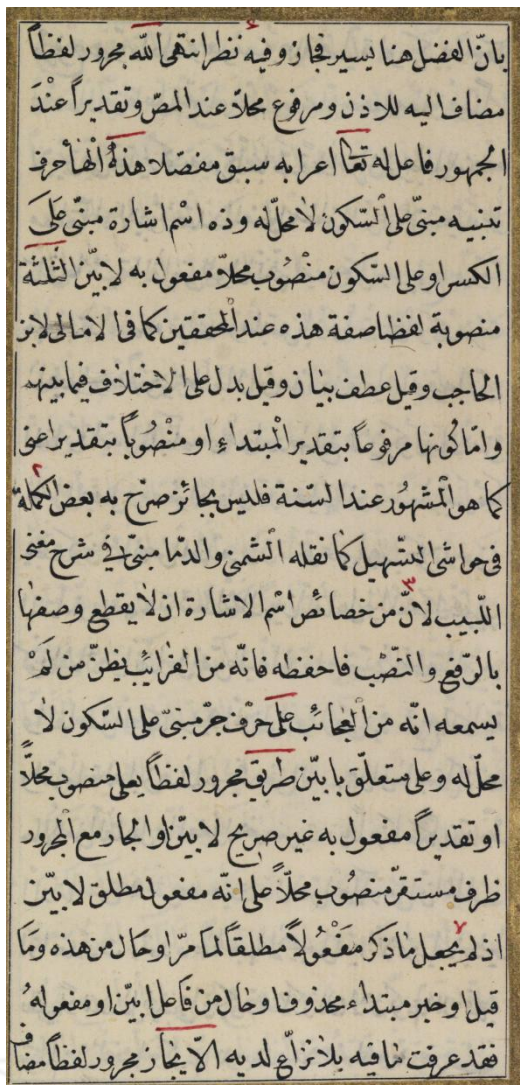 بانّ الفضل هنا يسير فجاز وفيه نظر انتهى اللّه مجرور لفظاً
مضاف اليه للاذن ومرفوع محلاّ عند المصّ وتقديراً عنْدَ
الجمهور فاعل له تعا اعرابه سبق مفصّلا هذهُ الْهٰأ حرف
تنبيه مبنىّ على السّكون لا محلّ له وذه اسْم اشارة مبنىّ عَلىَ
الكسر او على السّكون منْصُوب محلاّ مفعول به لابيّن الثّلثة
منصوبة لفظا صفة هذه عند الْمحققين كما فى الامالى لابن
الحاجب وقيل عطف بيٰان وقيل بدل على الاختلاف فيما بينهم
وامّا كونها مرفوعاً بتقدير الْمبتداءِ او منْصُوباً بتقدير اعنى
كما هو الْمشهُور عند السّنة فليس بجائز صرّح به بعض الكملة
فى حواشى التسّهيل كما نقله الشّمنى والدّمٰا مبنىّ فى شرح مغنى
اللّبيب لانّ من خصائص اسْم الاشارة ان لا يقطع وصفهٰا
بالرّفع والنّصْب فاحفظه فانّه من الغرائب يظنّ من لَمْ
يسمعه انّه من الْعجائب على حَرْف جرّ مبنىّ على السّكون لا
محلّ له وعلى متعلّق بابيّن طريق مجرور لفظاً بعلى منصوب محلاًّ
او تقديراً مفعول به غير صريح لابيّن او الجار مع الْمجرور
ظرف مستقرّ منصُوب محلاّ على انّه مفعول مطلق لابيّن
اذ لم يجعل مٰا ذكر مفْعُولاً مطلقاً لما مرّ او حال من هذه ومَا
قبل او خبر مبتداء محذوف او حٰال من فاعل ابيّن او مفعوله
فقد عرفت مٰا فيه بلا نزاع لديه الايجٰاز مجرور لفظاً مضاف